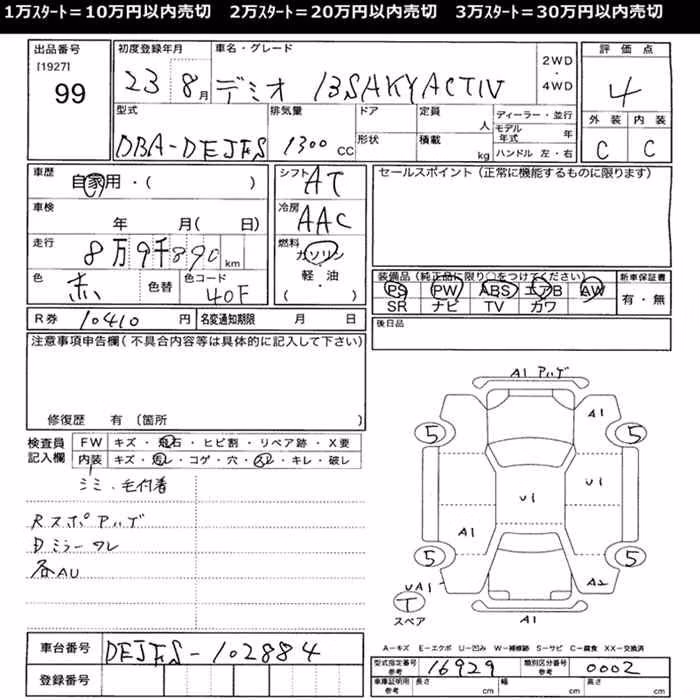 1万ｽﾀｰﾄ＝10万円以内売切　2万ｽﾀｰﾄ＝20万円以内売切　3万ｽﾀｰﾄ＝30万円以内売切
出品番号
[1927]
99
初度登録年月
23 8月
車名・グレード
デミオ 13SAKYACTIV
2WD
・
4WD
評価点
4
外装 内装
C C
型式
DBA-DEJFS
排気量
1300 CC
ドア
形状
定員
人
積載
kg
ディーラー・並行
モデル年式 年
ハンドル 左・右
車歴
自家用・( )
車検
年 月( 日)
走行
8万9千890 km
色
赤
色替
色コード
40F
シフト
AT
冷房
AAC
燃料
ガソリン
・
軽・油
( )
セールスポイント（正常に機能するものに限ります）
装備品（純正品に限り○をつけてください）
PS PW ABS エアB AW
SR ナビ TV カワ
新車保証書
有・無
後日品
R券 10410 円
名変通知期限 月 日
注意事項申告欄（不具合内容等は具体的に記入して下さい）
修復歴 有 〔箇所
検査員
記入欄
FW キズ・飛石・ヒビ割・リペア跡・X要
内装 キズ・汚レ・コゲ・穴・スレ・キレ・破レ
シミ・毛付着
Rスポアルゲ
Dミラーワレ
各AU
A1 アルゲ
A1
5 5
U1 U1
A1
5 5
UA1
A2
T
スペア
A1
A－キズ E－エクボ U－凹み W－補修跡 S－サビ C－腐食 XX－交換済
車台番号
DEJFS-102884
登録番号
型式指定番号
参考
16929
類別区分番号
参考
0002
車庫証明用
参考
長さ cm
幅 cm
高さ cm